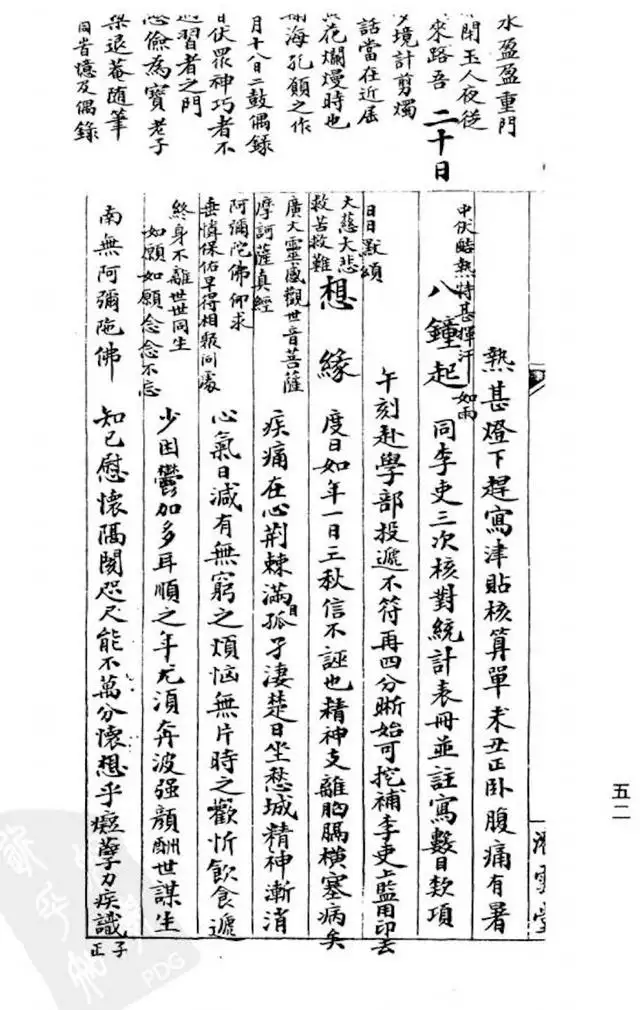 水盈盈重門
閉玉人夜從
來路吾
境計剪燭
話當在近屆
花爛熳時也
海孔顨之作
月十八日二鼓偶錄
日伏羆神巧者不
過習者之門
儉為寶老子
梁退菴隨筆
因省憶及偶錄
二十日
熱甚燈下趕寫津貼核算單未丑正卧腹痛有暑
中伏酷熱特甚揮汗如雨
八鐘起 同李吏三次核對統計表冊並註寫數目款項
午刻赴學部投遞不符再四分晰始可挖補李吏上監用印去
日日默頌
大慈大悲
救苦救難
想緣 度日如年一日三秋信不誣也精神支離胸膈橫塞病矣
廣大靈感觀世音菩薩
摩訶薩真經
疾痛在心荆棘滿目孤孑淒楚日坐愁城精神漸消
阿彌陀佛仰求
垂憐保佑早得相聚同處
心氣日減有無窮之煩惱無片時之歡忻飲食遞
終身不離世世同生
如願如願念念不忘
少因鬱加多耳順之年尤須奔波强顏酬世謀生
南無阿彌陀佛 知己慰懷隔閡咫尺能不萬分懷想乎癡孽力疾識
子正
五二
PDG